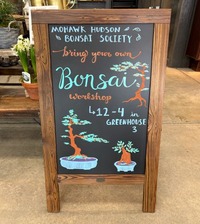 MOHAWK HUDSON
BONSAI SOCIETY
bring your own
Bonsai
workshop
12-4 in
GREENHOUSE
3